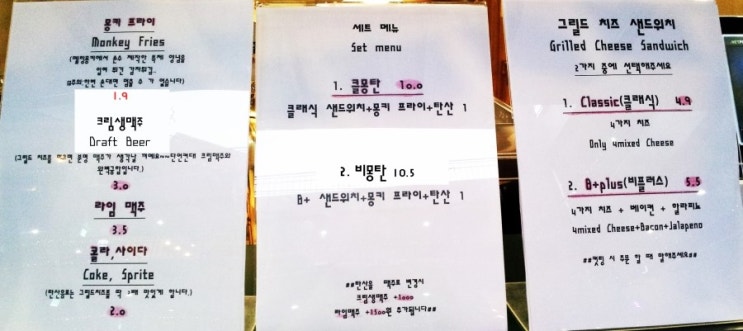 몽키 프라이
Monkey Fries
1.9
크림생맥주
Draft Beer
3.0
라임 맥주
3.5
콜라,사이다
Coke, Sprite
2.0
세트 메뉴
Set menu
1. 클몽탄 10.0
클래식 샌드위치+몽키 프라이+탄산 1
2. 비몽탄 10.5
B+ 샌드위치+몽키 프라이+탄산 1
##탄산을 맥주로 변경시
크림생맥주 +1000
라임맥주 +1500원 추가됩니다##
그릴드 치즈 샌드위치
Grilled Cheese Sandwich
2가지 중에 선택해주세요
1. Classic(클래식) 4.9
4가지 치즈
Only 4mixed Cheese
2. B+plus(비플러스) 5.5
4가지 치즈 + 베이컨 + 할라피뇨
4mixed Cheese+Bacon+Jalapeno
주문 할 때 말해주세요##